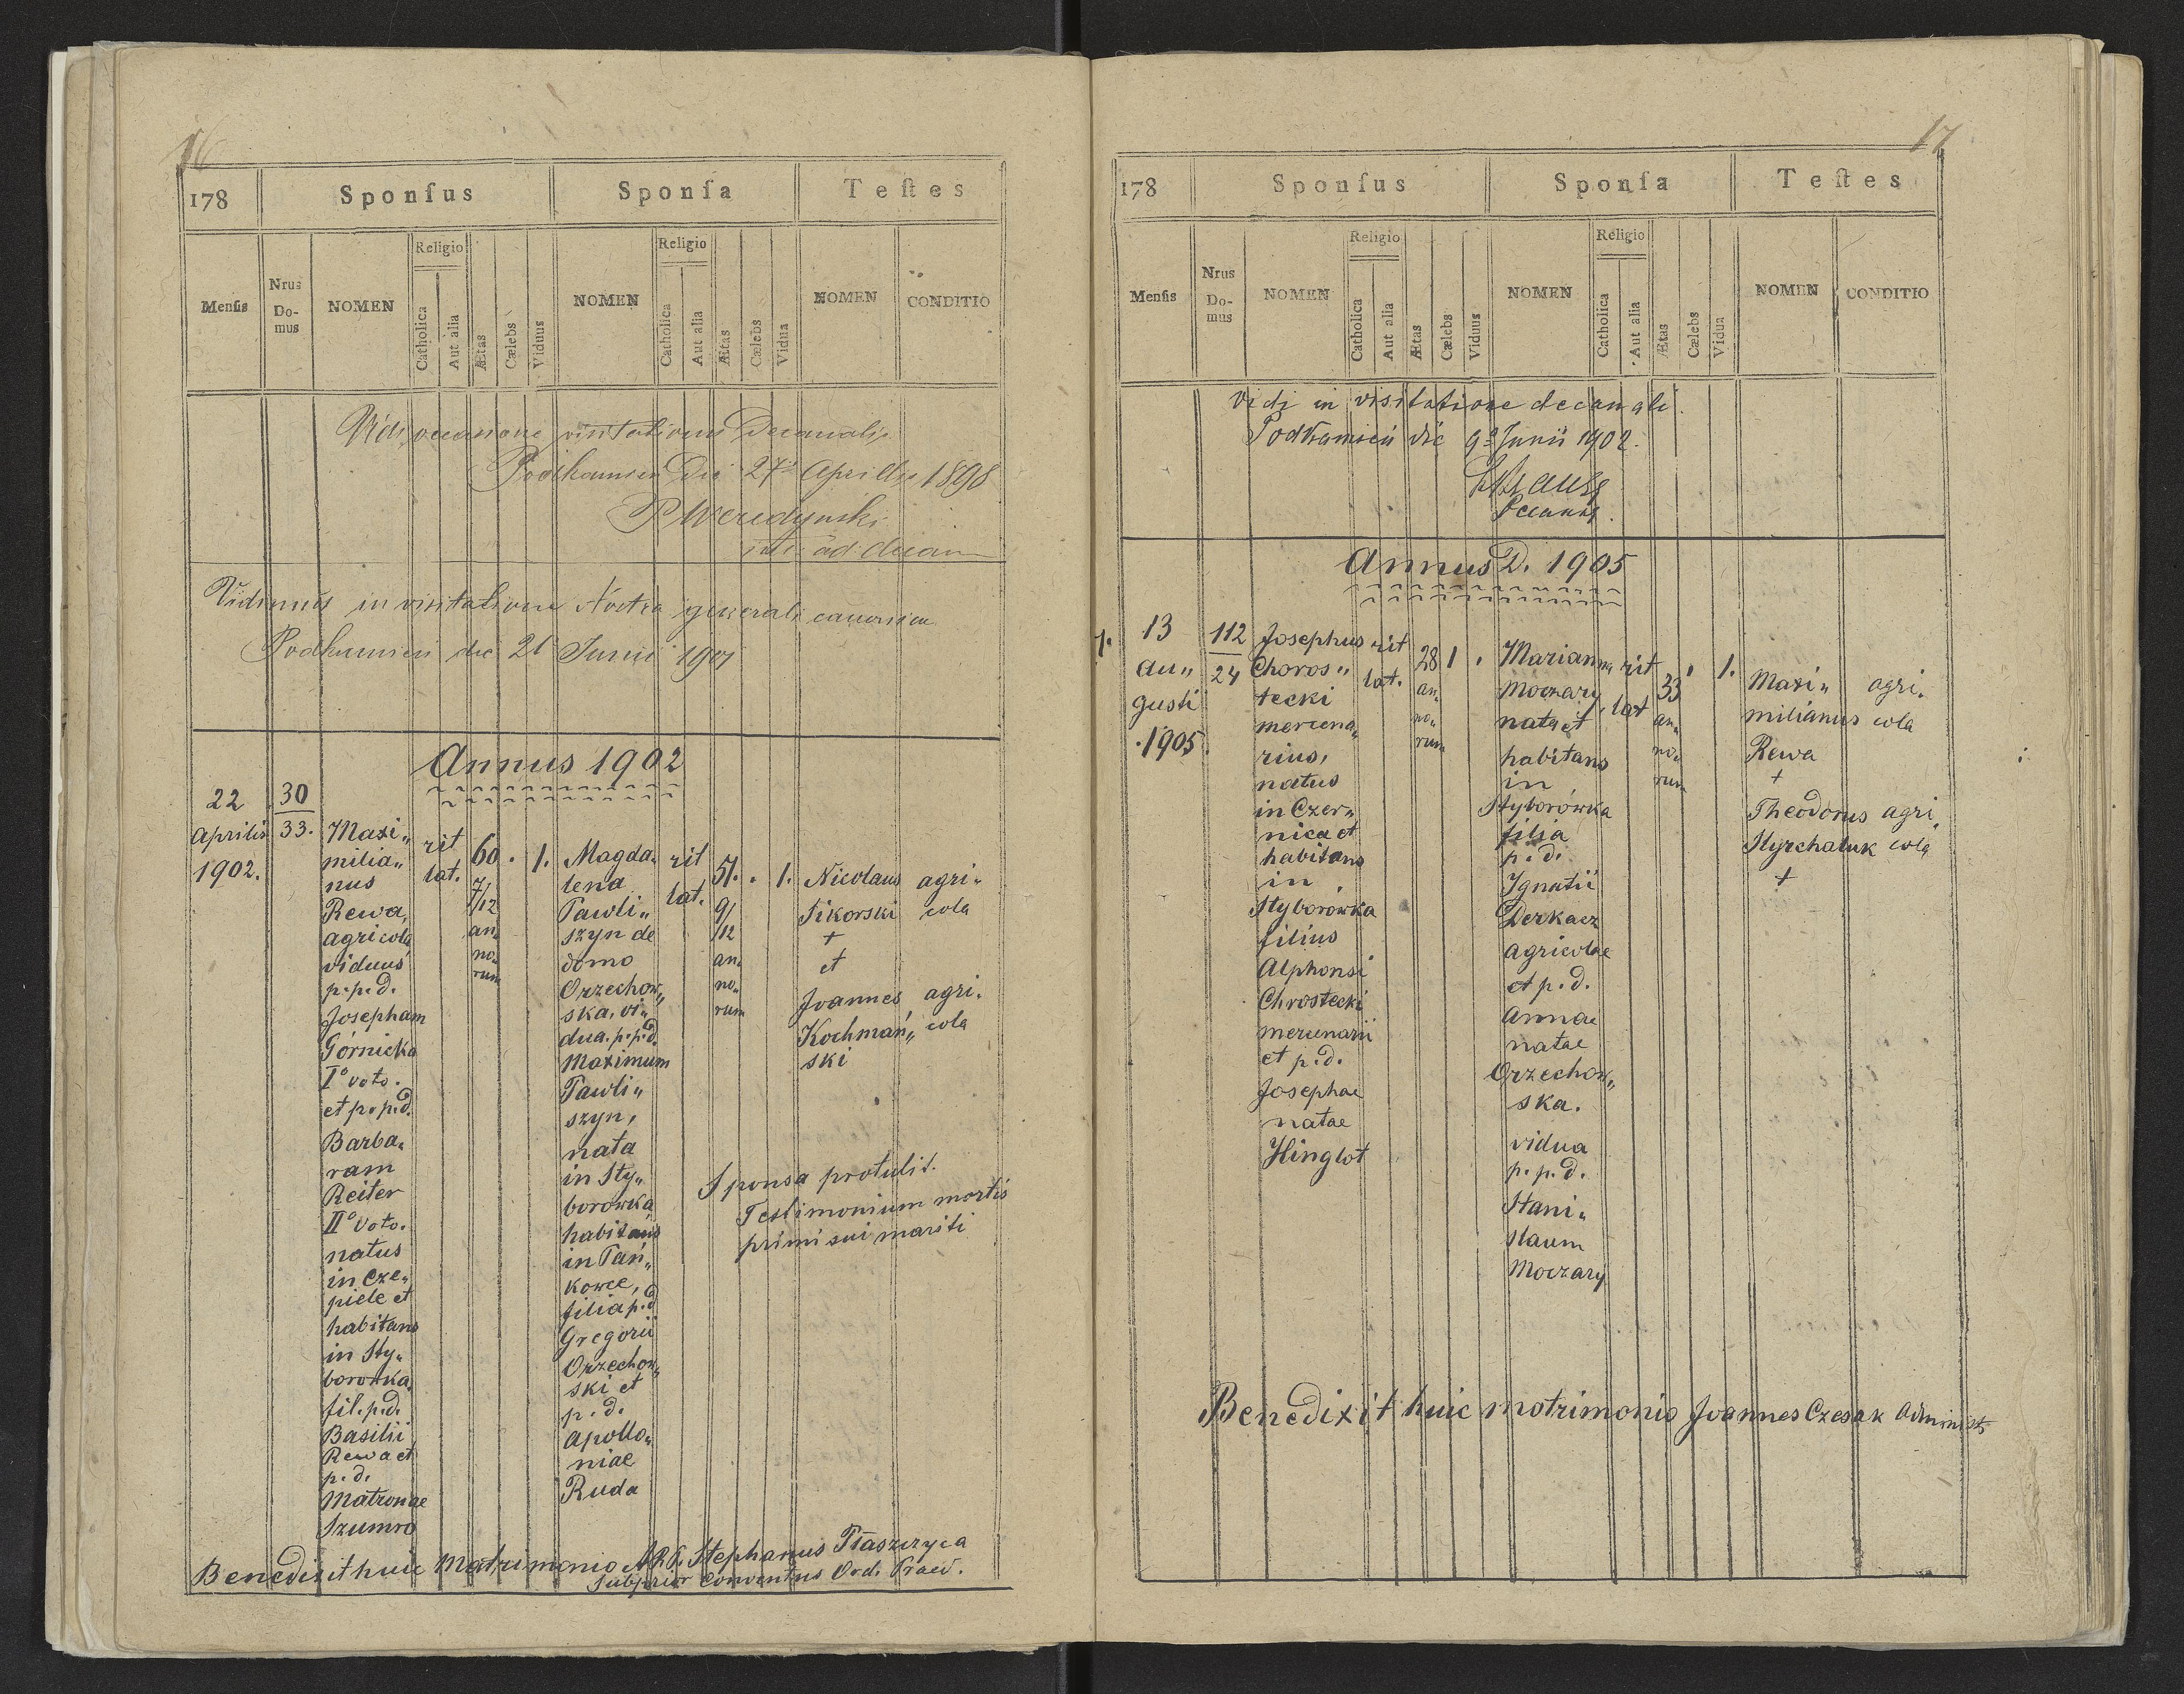 16
178 Sponſus Sponſa Teſtes
Menſis Nrus Do- mus NOMEN Religio Catholica Aut alia Ætas Cælebs Viduus NOMEN Religio Catholica Aut alia Ætas Cælebs Vidua NOMEN CONDITIO
Vidi occasione visitationis Decanalis
Podkamien Die 27 Aprilis 1898
Vidimus in visitatione Nostra generali canonica
Podkamien die 21 Junii 1901
Annus 1902
22
Aprilis
1902.
30
33.
Maxi„
milia„
nus
Rewa,
agricola
viduus
p.p.d.
Josepham
Górnicka
I° voto.
et p.p.d.
Barba„
ram
Reiter
II° voto.
natus
in Cze„
piele et
habitans
in Sty„
borowka,
fil. p.d.
Basilii
Rewa et
p.d.
Matronae
Szumro
rit
lat.
60
7/12
an„
no„
rum
.
1.
Magda„
lena
Pawli„
szyn de
domo
Orzechow„
ska, vi„
dua. p.p.d.
Maximum
Pawli„
szyn,
nata
in Sty„
borowka,
habitans
in Pań„
kowce,
filia p.d.
Gregorii
Orzechow„
ski et
p.d.
Apollo„
niae
Ruda
rit
lat.
51.
9/12
an„
no„
rum
.
1.
Nicolaus agri„
Sikorski cola
+
et
Joannes agri„
Kochmań„ cola
ski
Sponsa protulit
Testimonium mortis
primi sui mariti
Benedixit huic Matrimonio A.R.P. Stephanus Ptaszczyca
Subprior Conventus Ord. Praed.
17
178 Sponſus Sponſa Teſtes
Menſis Nrus Do- mus NOMEN Religio Catholica Aut alia Ætas Cælebs Viduus NOMEN Religio Catholica Aut alia Ætas Cælebs Vidua NOMEN CONDITIO
Vidi in visitatione decanali.
Podkamień die 9° Junii 1902.
Decanus.
Annus D. 1905
1.
13
Au„
gusti
.1905.
112
24
Josephus
Choros„
tecki
mercena„
rius,
natus
in Czer„
nica et
habitans
in
Styborówka
filius
Alphonsi
Chrostecki
mercenarii
et p.d.
Josephae
natae
Hinglot
rit
lat.
28
an„
no„
rum
1
.
Marianna
Moczary
nata et
habitans
in
Styborówka
filia
p.d.
Ignatii
Derkacz
agricolae
et p.d.
Annae
natae
Orzechow„
ska.
vidua
p.p.d.
Stani„
slaum
Moczary
rit
lat
33
an„
no„
rum
1.
Maxi„ agri„
milianus cola
Rewa
+
Theodorus agri„
Styrchaluk cola
+
Benedixit huic matrimonio Joannes Czesak Administ.